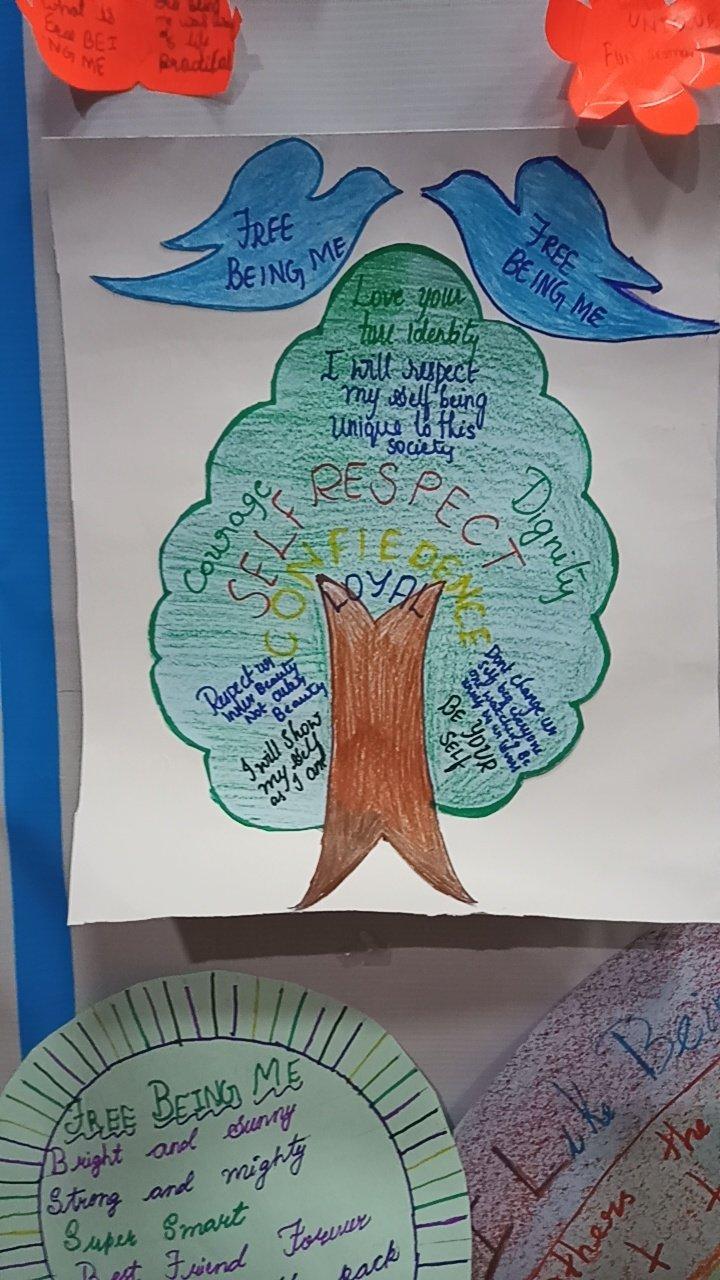 What is
Free BEI
NG ME
of life
UNIQUE
FREE
BEING ME
FREE
BEING ME
Love your
true Identity
I will respect
my self being
Unique to this
society
SELF RESPECT
Courage
Dignity
CONFIEDENCE
LOYAL
Respect ur
Inner Beauty
Not outer
Beauty
I will show
my self
as I am
Dont change ur
self
BE YOUR
SELF
FREE BEING ME
Bright and sunny
Strong and mighty
Super Smart
Best Friend Forever
back
I Like Bei
thers the